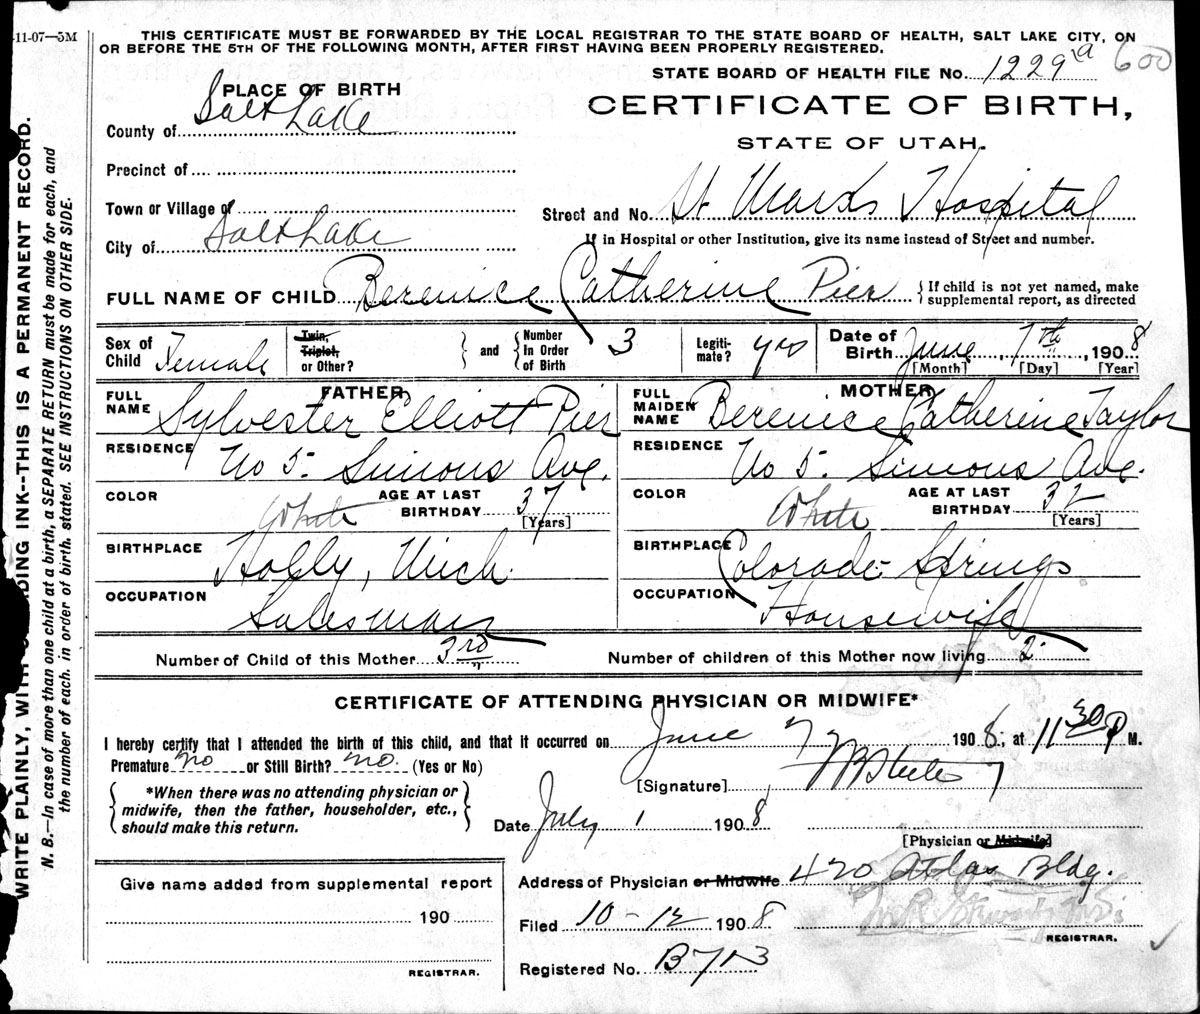 11-07—3M
THIS CERTIFICATE MUST BE FORWARDED BY THE LOCAL REGISTRAR TO THE STATE BOARD OF HEALTH, SALT LAKE CITY, ON
OR BEFORE THE 5TH OF THE FOLLOWING MONTH, AFTER FIRST HAVING BEEN PROPERLY REGISTERED.
STATE BOARD OF HEALTH FILE No. 1229 a 600
PLACE OF BIRTH
CERTIFICATE OF BIRTH,
STATE OF UTAH.
County of Salt Lake
Precinct of
Town or Village of
Street and No. St Marks Hospital
City of Salt Lake
If in Hospital or other Institution, give its name instead of Street and number.
FULL NAME OF CHILD Berenice Catherine Pier { If child is not yet named, make supplemental report, as directed
Sex of Child Female Twin, Triplet, or Other? } and { Number In Order of Birth 3 Legiti-mate? yes Date of Birth June, 7th, 1908
[Month] [Day] [Year]
FATHER
FULL NAME Sylvester Elliott Pier
RESIDENCE No 5. Simons Ave.
COLOR White AGE AT LAST BIRTHDAY 37 [Years]
BIRTHPLACE Holly, Mich.
OCCUPATION Salesman
MOTHER
FULL MAIDEN NAME Berenice Catherine Taylor
RESIDENCE No 5. Simons Ave.
COLOR White AGE AT LAST BIRTHDAY 32 [Years]
BIRTHPLACE Colorado Springs
OCCUPATION Housewife
Number of Child of this Mother 3rd Number of children of this Mother now living 2
CERTIFICATE OF ATTENDING PHYSICIAN OR MIDWIFE*
I hereby certify that I attended the birth of this child, and that it occurred on June 7 1908, at 11 30 P M.
Premature no or Still Birth? no. (Yes or No)
[Signature]
{ *When there was no attending physician or midwife, then the father, householder, etc., should make this return. }
Date July 1 1908
[Physician or Midwife]
Address of Physician or Midwife 420 Atlas Bldg.
Filed 10-12 1908
REGISTRAR.
Registered No. B713
Give name added from supplemental report
190
REGISTRAR.
WRITE PLAINLY, WITH INK--THIS IS A PERMANENT RECORD.
N. B.—In case of more than one child at a birth, a SEPARATE RETURN must be made for each, and
the number of each, in order of birth, stated. SEE INSTRUCTIONS ON OTHER SIDE.